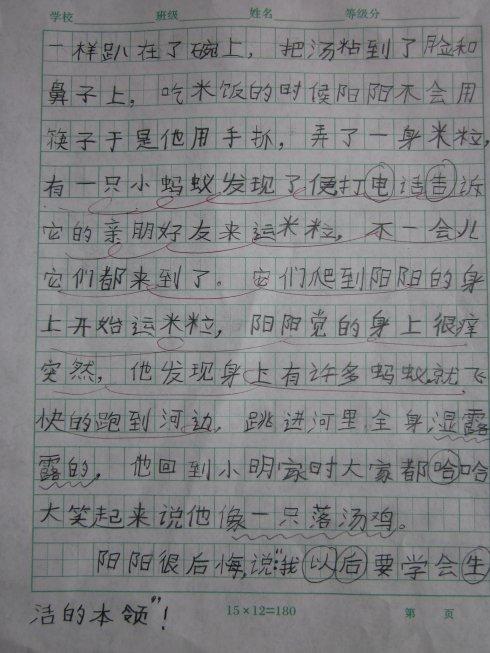 学校 班级 姓名 等级分
一样趴在了碗上，把汤粘到了脸和
鼻子上，吃米饭的时候阳阳不会用
筷子于是他用手抓，弄了一身米粒，
有一只小蚂蚁发现了便打电话告诉
它的亲朋好友来运米粒，不一会儿
它们都来到了。它们爬到阳阳的身
上开始运米粒，阳阳觉的身上很痒
突然，他发现身上有许多蚂蚁就飞
快的跑到河边，跳进河里全身湿露
露的，他回到小明家时大家都哈哈
大笑起来说他像一只落汤鸡。
阳阳很后悔，说“我以后要学会生
活的本领”！
15×12=180 第 页